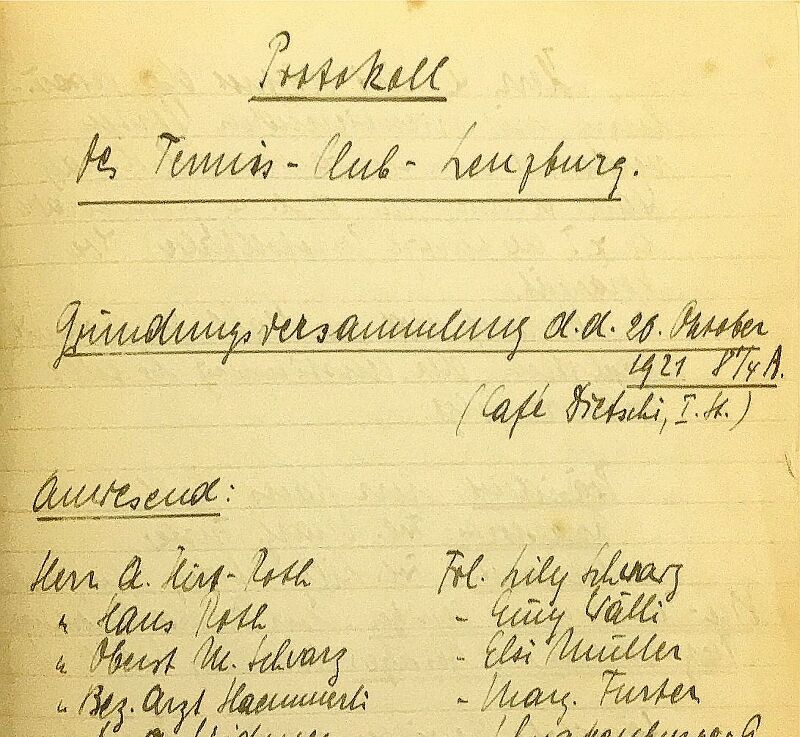 Protokoll
des Tennis-Club-Lenzburg.
Gründungsversammlung d.d. 20. Oktober
1921 8 1/4 A.
(Café Dietschi, I. St.)
Anwesend:
Herr A. Hirt-Roth
" Hans Roth
" Oberst M. Schwarz
" Bez. Arzt Haemmerli
Frl. Lily Schwarz
- Emmy Wälli
- Elsi Müller
- Marg. Furter